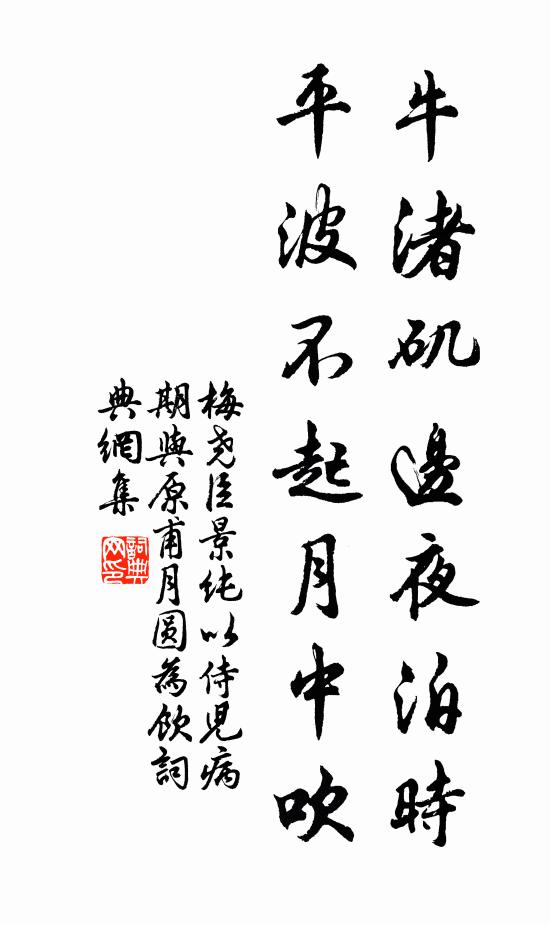 牛渚矶邊夜泊時
平波不起月中吹
梅尧臣景純以侍児病
期與原甫月圆為飲詞
典網集
詞典网印